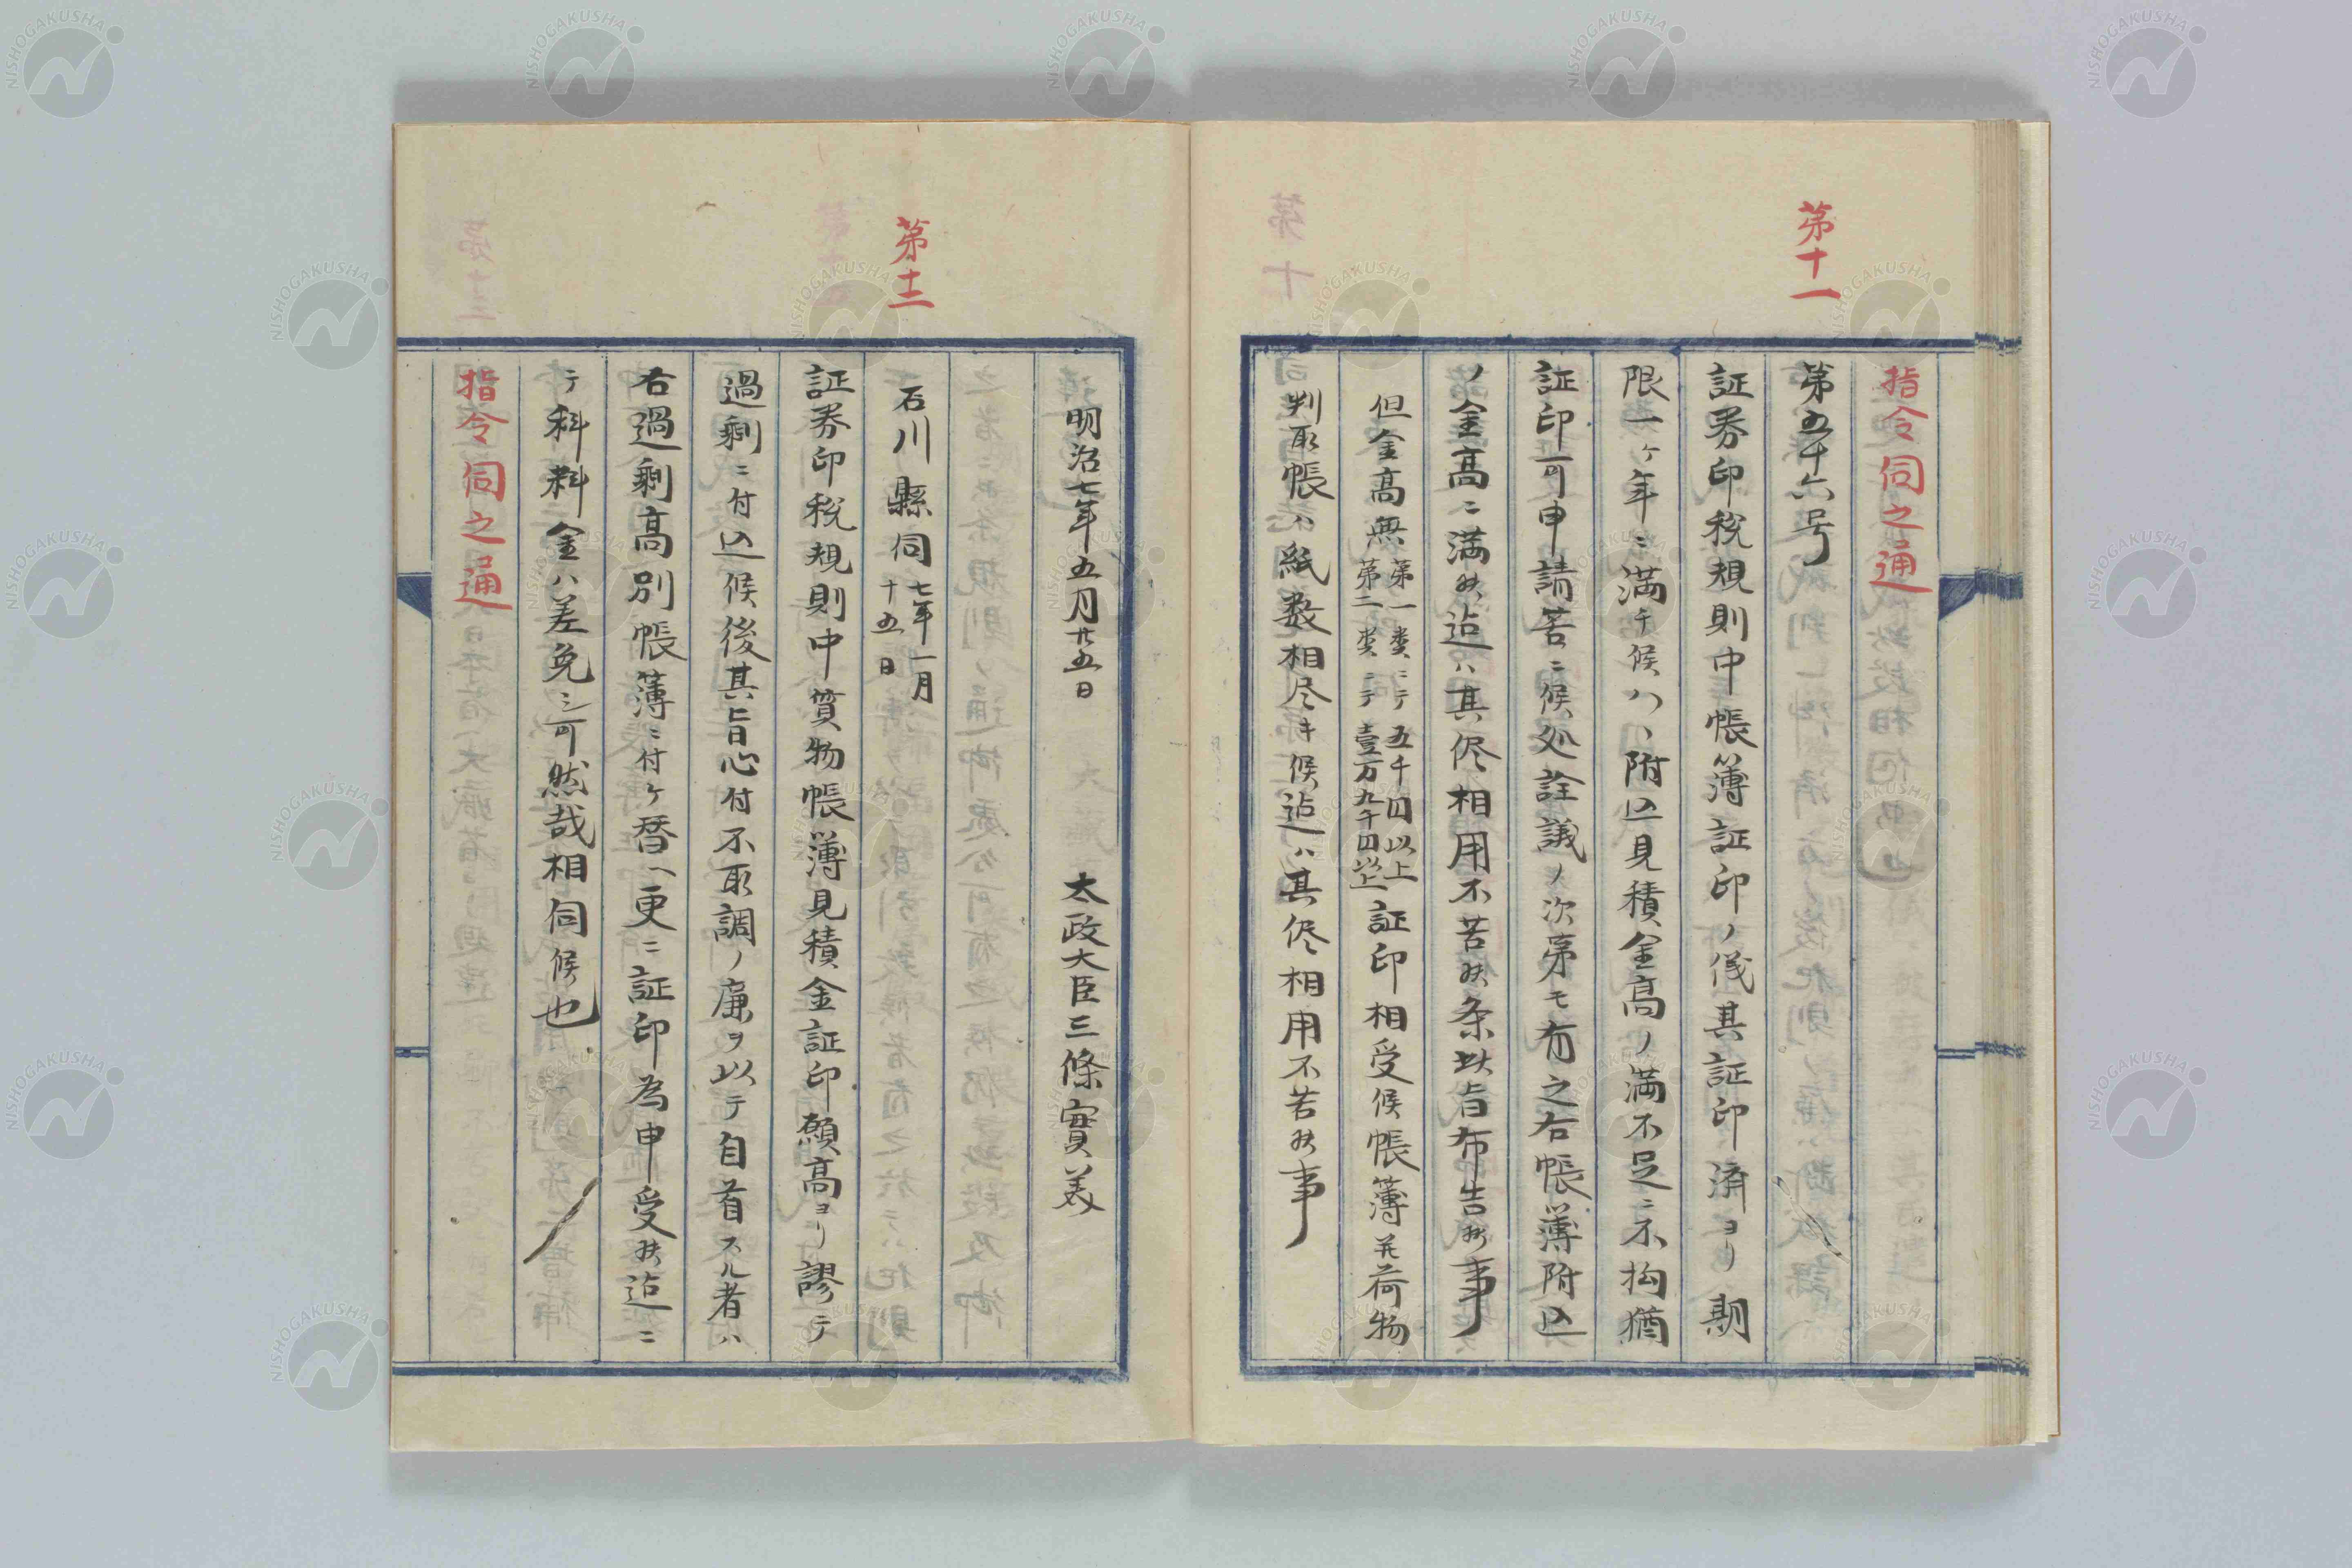 第十一
指令伺之通
第五十六号
証券印税規則中帳簿証印ノ儀其証印済ヨリ期
限一ヶ年ニ満チ候ハヽ附込見積金高ノ満不足ニ不拘猶
証印可申請筈ニ候処詮議ノ次第モ有之右帳簿附込
ノ金高ニ満候迠ハ其侭相用不苦候条此旨布告候事
但金高無
第一類ニテ五千円以上
第二類ニテ壹万九千円以上
証印相受候帳簿并荷物
判取帳ハ紙数相尽キ候迠ハ其侭相用不苦候事
明治七年五月廿五日 太政大臣三條實美
第十二
石川縣伺
七年一月
十五日
証券印税規則中質物帳簿見積金証印願高ヨリ謬テ
過剰ニ付込候後其旨心付不取調ノ廉ヲ以テ自首スル者ハ
右過剰高別帳簿ニ付ケ替ヘ更ニ証印為申受候迠ニ
テ科料金ハ差免シ可然哉相伺候也
指令伺之通